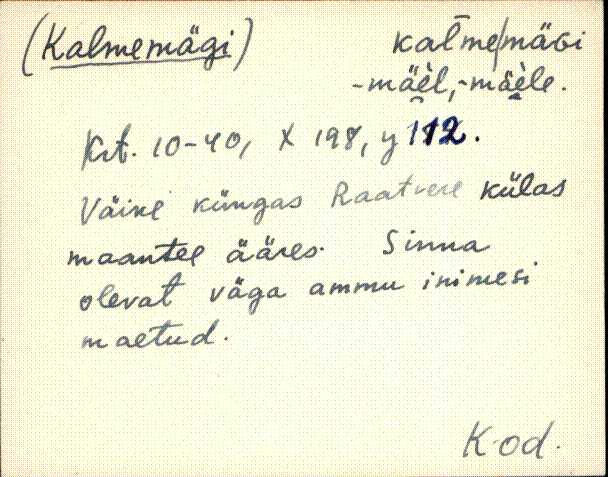 (Kalmemägi) kal̄me/mägi
-mäèl, -mäèle.
Krt. 10-40, X 198, y 112.
Väike küngas Raatvere külas
maantee ääres. Sinna
olevat väga ammu inimesi
maetud.
Kod.